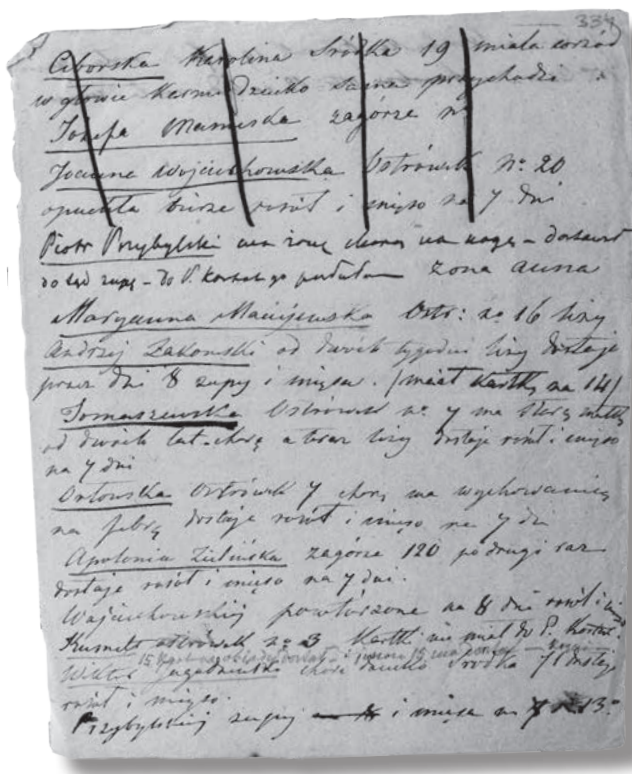 334
Ciborska Karolina Śródka 19 miała wrzód
w głowie Karmi dziecko sama przychodzi
Józefa Manieska zagórze n
Joanna Wojciechowska Ostrówek nº 20
opuchła bierze rosół i mięso na 7 dni
Piotr Przybylski ma żonę chorą na nogę – dostawał
do tąd zupę – do P. żona anna
Maryanna Maciejewska Ostr: nº 16 leży
Andrzej Zakowski od dwóch tygodni leży dostaje
przez dni 8 zupy i mięsa. (miał kartkę na 14)
Tomaszewska Ostrówek nº 7 ma starą matkę
od dwóch lat chorą a teraz leży dostaje rosół i mięso
na 7 dni
Orłowska Ostrówek 7 chorą ma wychowanicę
na febrę dostaje rosół i mięso na 7 dni
Apolonia Zielińska zagórze 120 po drugi raz
dostaje rosół i mięso na 7 dni.
Wojciechowskiej powtórzone na 8 dni rosół i
ostrówek nº 3 kartki nie miał do P.
15
Wiktor chore dziecko Śródka 71 dostaje
rosół i mięso.
Przybylskiej zupy i mięsa na